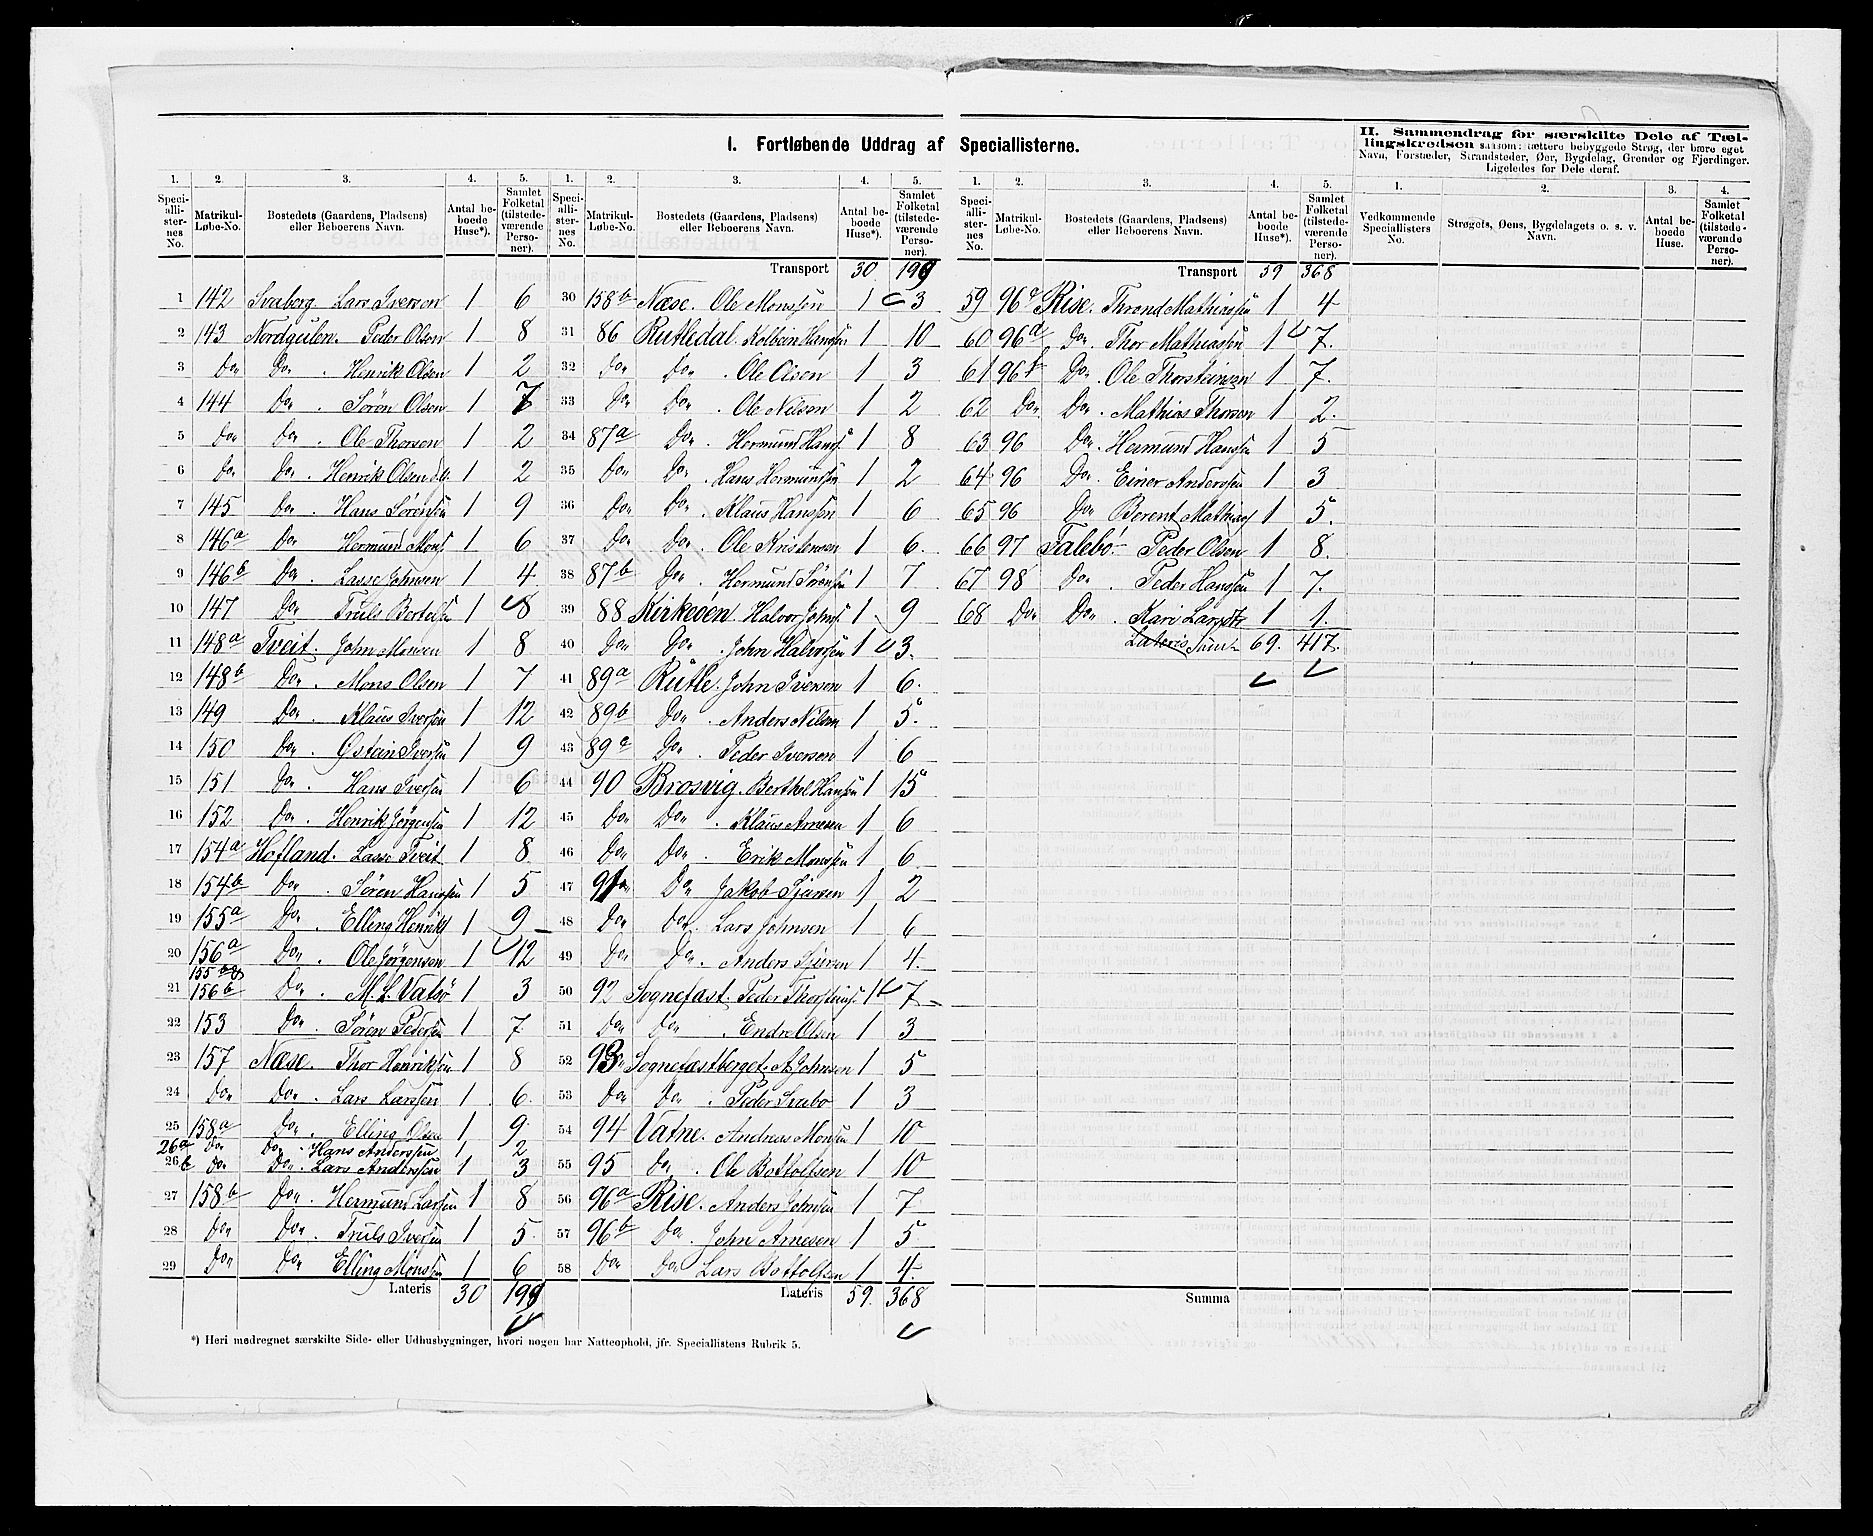 I. Fortløbende Uddrag af Speciallisterne.
II. Sammendrag for særskilte Dele af Tællingskredsen saasom: tættere bebyggede Strøg, der bære eget
Navn, Forstæder, Strandsteder, Øer, Bygdelag, Grender og Fjerdinger.
Ligeledes for Dele deraf.
1. 2. 3. 4. 5.
Speciallisternes No. Matrikul-Løbe-No. Bostedets (Gaardens, Pladsens) eller Beboerens Navn. Antal beboede Huse*). Samlet Folketal (tilstedeværende Personer).
1 142 Svaberg Lars Iverson 1 6
2 143 Nordgulen. Peder Olson 1 8
3 Do Do . Henrik Olsen 1 2
4 144 Do . Søren Olsen 1 7
5 Do Do . Ole Thorson 1 2
6 Do Do . Henrik Olsen 1 2
7 145 Do . Hans Sørensen 1 9
8 146a Do Hermund Mons 1 6
9 146b Do . Lasse Johnsen 1 4
10 147 Do Truls Bertelsen 1 8
11 148a Tveit. John Monsen 1 8
12 148b Do . Mons Olsen 1 7
13 149 Do . Klaus Iversen 1 12
14 150 Do . Østein Iversen 1 9
15 151 Do . Hans Iversen 1 6
16 152 Do . Henrik Jørgensen 1 12
17 154a Hofland. Lasse Tveit 1 8
18 154b Do . Søren Hanssen 1 5
19 155a Do . Elling Henriks 1 9
20 156a Do . Ole Jørgensen 1 12
21 155 156b Do . M. L. Vatsø 1 3
22 153 Do . Søren Pedersen 1 7
23 157 Næse. Thor Henriksen 1 8
24 Do Do . Lars Larssen 1 6
25 158a Do . Elling Olsen 1 9
26a Do Do . Hans Anderssen 1 2
26b Do Do . Lars Anderssen 1 3
27 158b Do . Hermund Larssen 1 8
28 Do Do . Truls Iversen 1 5
29 Do Do Elling Monssen 1 6
Lateris 30 199
1. 2. 3. 4. 5.
Speciallisternes No. Matrikul-Løbe-No. Bostedets (Gaardens, Pladsens) eller Beboerens Navn. Antal beboede Huse*). Samlet Folketal (tilstedeværende Personer).
Transport 30 199
30 158b Næse. Ole Monssen 1 3
31 86 Rutledal. Kolbein Hanssen 1 10
32 Do Do . Ole Olson 1 3
33 Do Do . Ole Nilson 1 2
34 87a Do . Hermund Hans 1 8
35 Do Do . Hans Hermundsen 1 2
36 Do Do . Klaus Hanssen 1 6
37 Do Do . Ole Kristensen 1 6.
38 87b Do . Hermund Sørensen 1 7
39 88 Kirkeøen. Halvor Johns. 1 9
40 Do Do . John Halvorsen 1 3.
41 89a Rutle. John Iversen 1 6.
42 89b Do . Anders Nilsen 1 5.
43 89c Do . Peder Iversen 1 6
44 90 Brosvig. Berthel Hanssen 1 15
45 Do Do . Klaus Arnesen 1 6
46 Do Do . Erik Monssen 1 6
47 91 Do Jakob Sjursen 1 2
48 Do Do . Lars Johnsen 1 6
49 Do Do . Anders Sjursen 1 4.
50 92 Sognefast. Peder Thorsteins. 1 7
51 Do Do . Endre Olsen 1 3
52 93 Sognefastberget. A. Johnsen 1 5
53 Do Do . Peder Svabo 1 3
54 94 Vatne. Andreas Monsen 1 10
55 95 Do . Ole Bottolfsen 1 10
56 96a Rise. Anders Johnsen 1 7
57 96b Do . John Arnesen 1 5
58 Do Do Lars Bottolfsen 1 4.
Lateris 59. 368
1. 2. 3. 4. 5.
Speciallisternes No. Matrikul-Løbe-No. Bostedets (Gaardens, Pladsens) eller Beboerens Navn. Antal beboede Huse*). Samlet Folketal (tilstedeværende Personer).
Transport 59 368
59 96c Rise. Thrond Mathiassen 1 4
60 96d Do . Thor Mathiassen 1 7.
61 96f Do . Ole Thorsteinsen 1 7.
62 Do Do . Mathias Thorson 1 2.
63 96 Do . Hermund Hanssen 1 5
64 96 Do . Einer Anderssen 1 3
65 96 Do Berent Mathias 1 5.
66 97 Falebø. Peder Olsen 1 8.
67 98 Do . Peder Hanssen 1 7.
68 Do Do . Kari Larsdtr 1 1.
Lateris Sum 69. 417.
Summa
1. 2. 3. 4.
Vedkommende Speciallisters No. Strøgets, Øens, Bygdelagets o. s. v. Navn. Antal beboede Huse. Samlet Folketal (tilstedeværende Personer).
*) Heri medregnet særskilte Side- eller Udhusbygninger, hvori nogen har Natteophold, jfr. Speciallistens Rubrik 5.